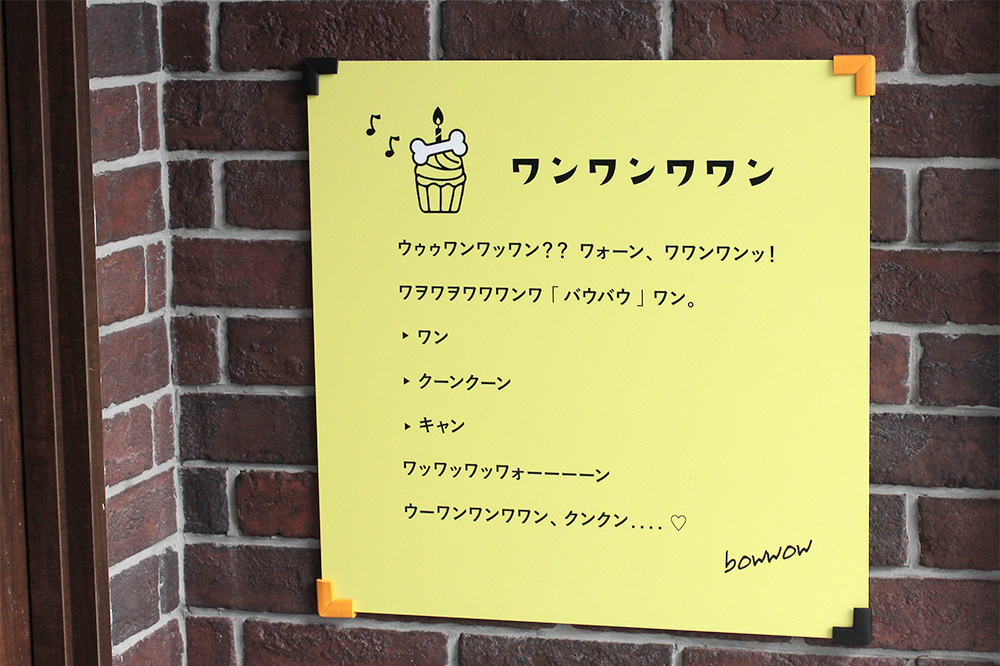 ワンワンワワン
ウゥゥワンワッワン?? ワォーン、ワワンワンッ!
ワヲワヲワワワンワ「バウバウ」ワン。
▶ ワン
▶ クーンクーン
▶ キャン
ワッワッワッワォーーーーン
ウーワンワンワワン、クンクン....♡
bowwow